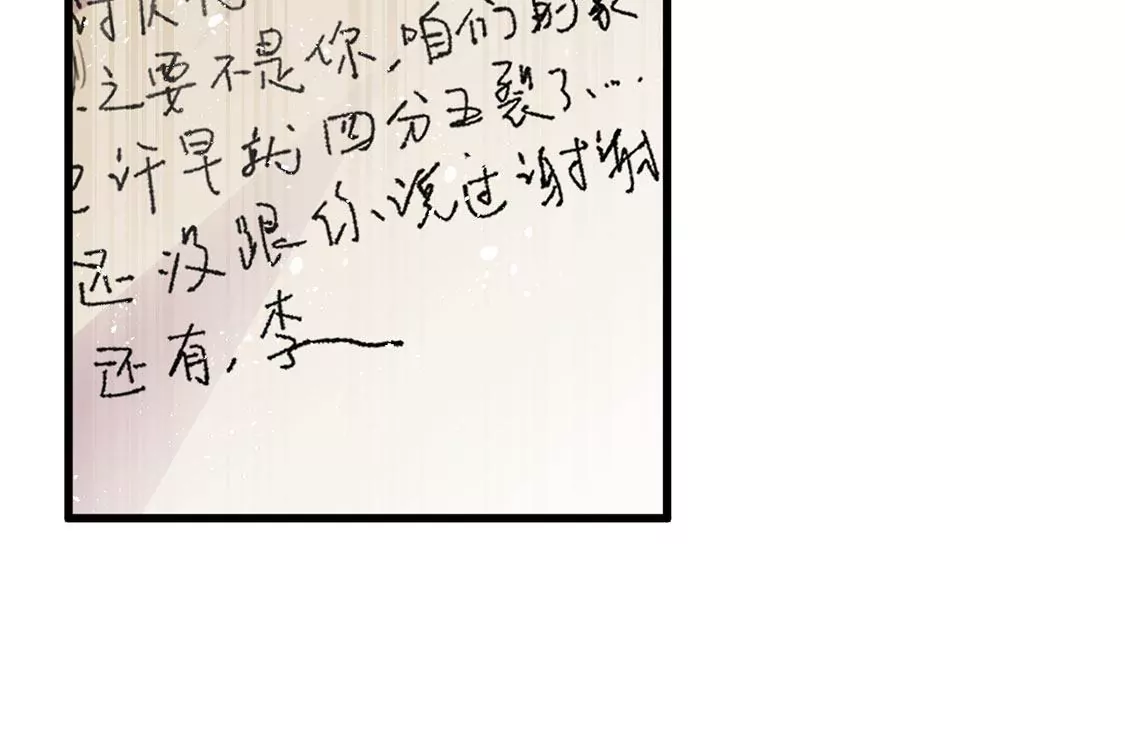 之要不是你，咱们的家
许早就四分五裂了…
还没跟你说过谢谢
还有，李